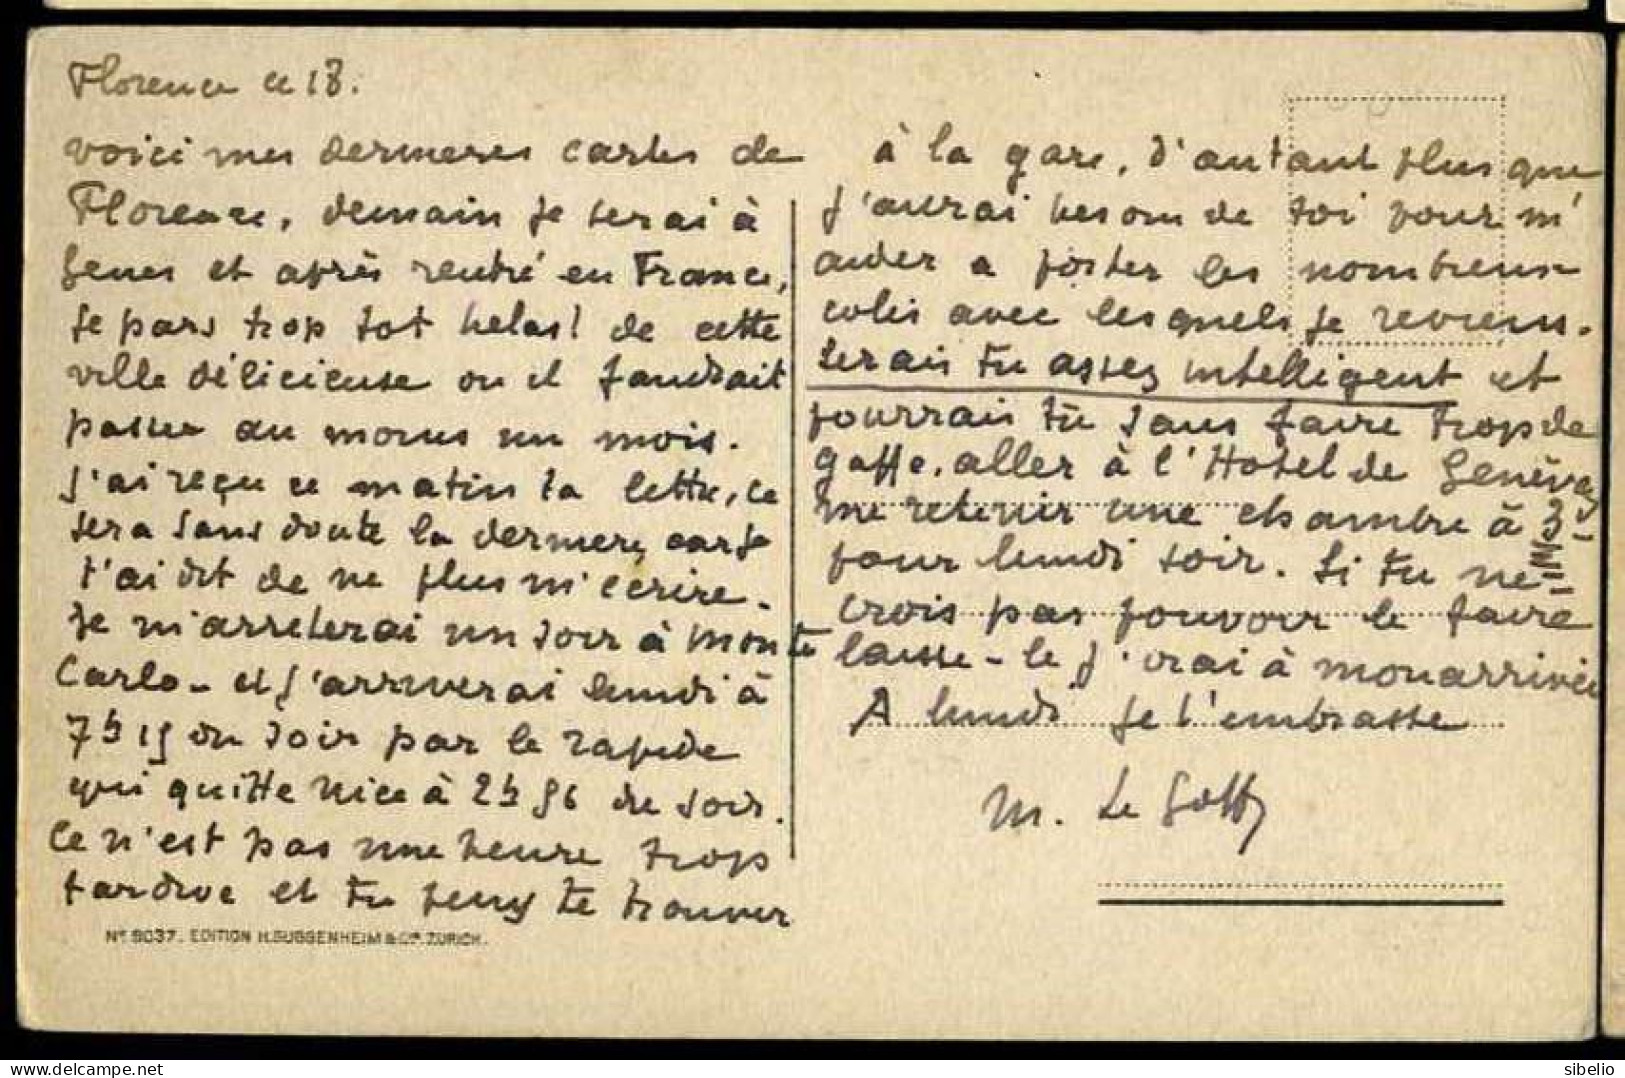 Florence ce 18.
voici mes dernieres cartes de
Florence, demain je serai à
Genes et après rentré en France,
je pars trop tot helas! de cette
ville délicieuse ou il faudrait
passer au moins un mois.
J'ai reçu ce matin ta lettre, ce
sera sans doute la derniere, car je
t'ai dit de ne plus m'écrire.
Je m'arreterai un soir à Monte
Carlo - et j'arriverai lundi à
7h 15 du soir par le rapide
qui quitte Nice à 2h 56 du soir.
Ce n'est pas une heure trop
tardive et tu peux te trouver
No. 9037. EDITION H. GUGGENHEIM & Co. ZURICH.
à la gare, d'autant plus que
j'aurai besoin de toi pour m'
aider a porter les nombreux
colis avec lesquels je reviens.
serais tu assez intelligent et
pourrais tu sans faire trop de
gaffe, aller à l'Hotel de Genève,
me retenir une chambre à 3
pour lundi soir. Si tu ne
crois pas pouvoir le faire
laisse-le j'irai à mon arrivée
A lundi je t'embrasse
M. Le Goffy
sibelio